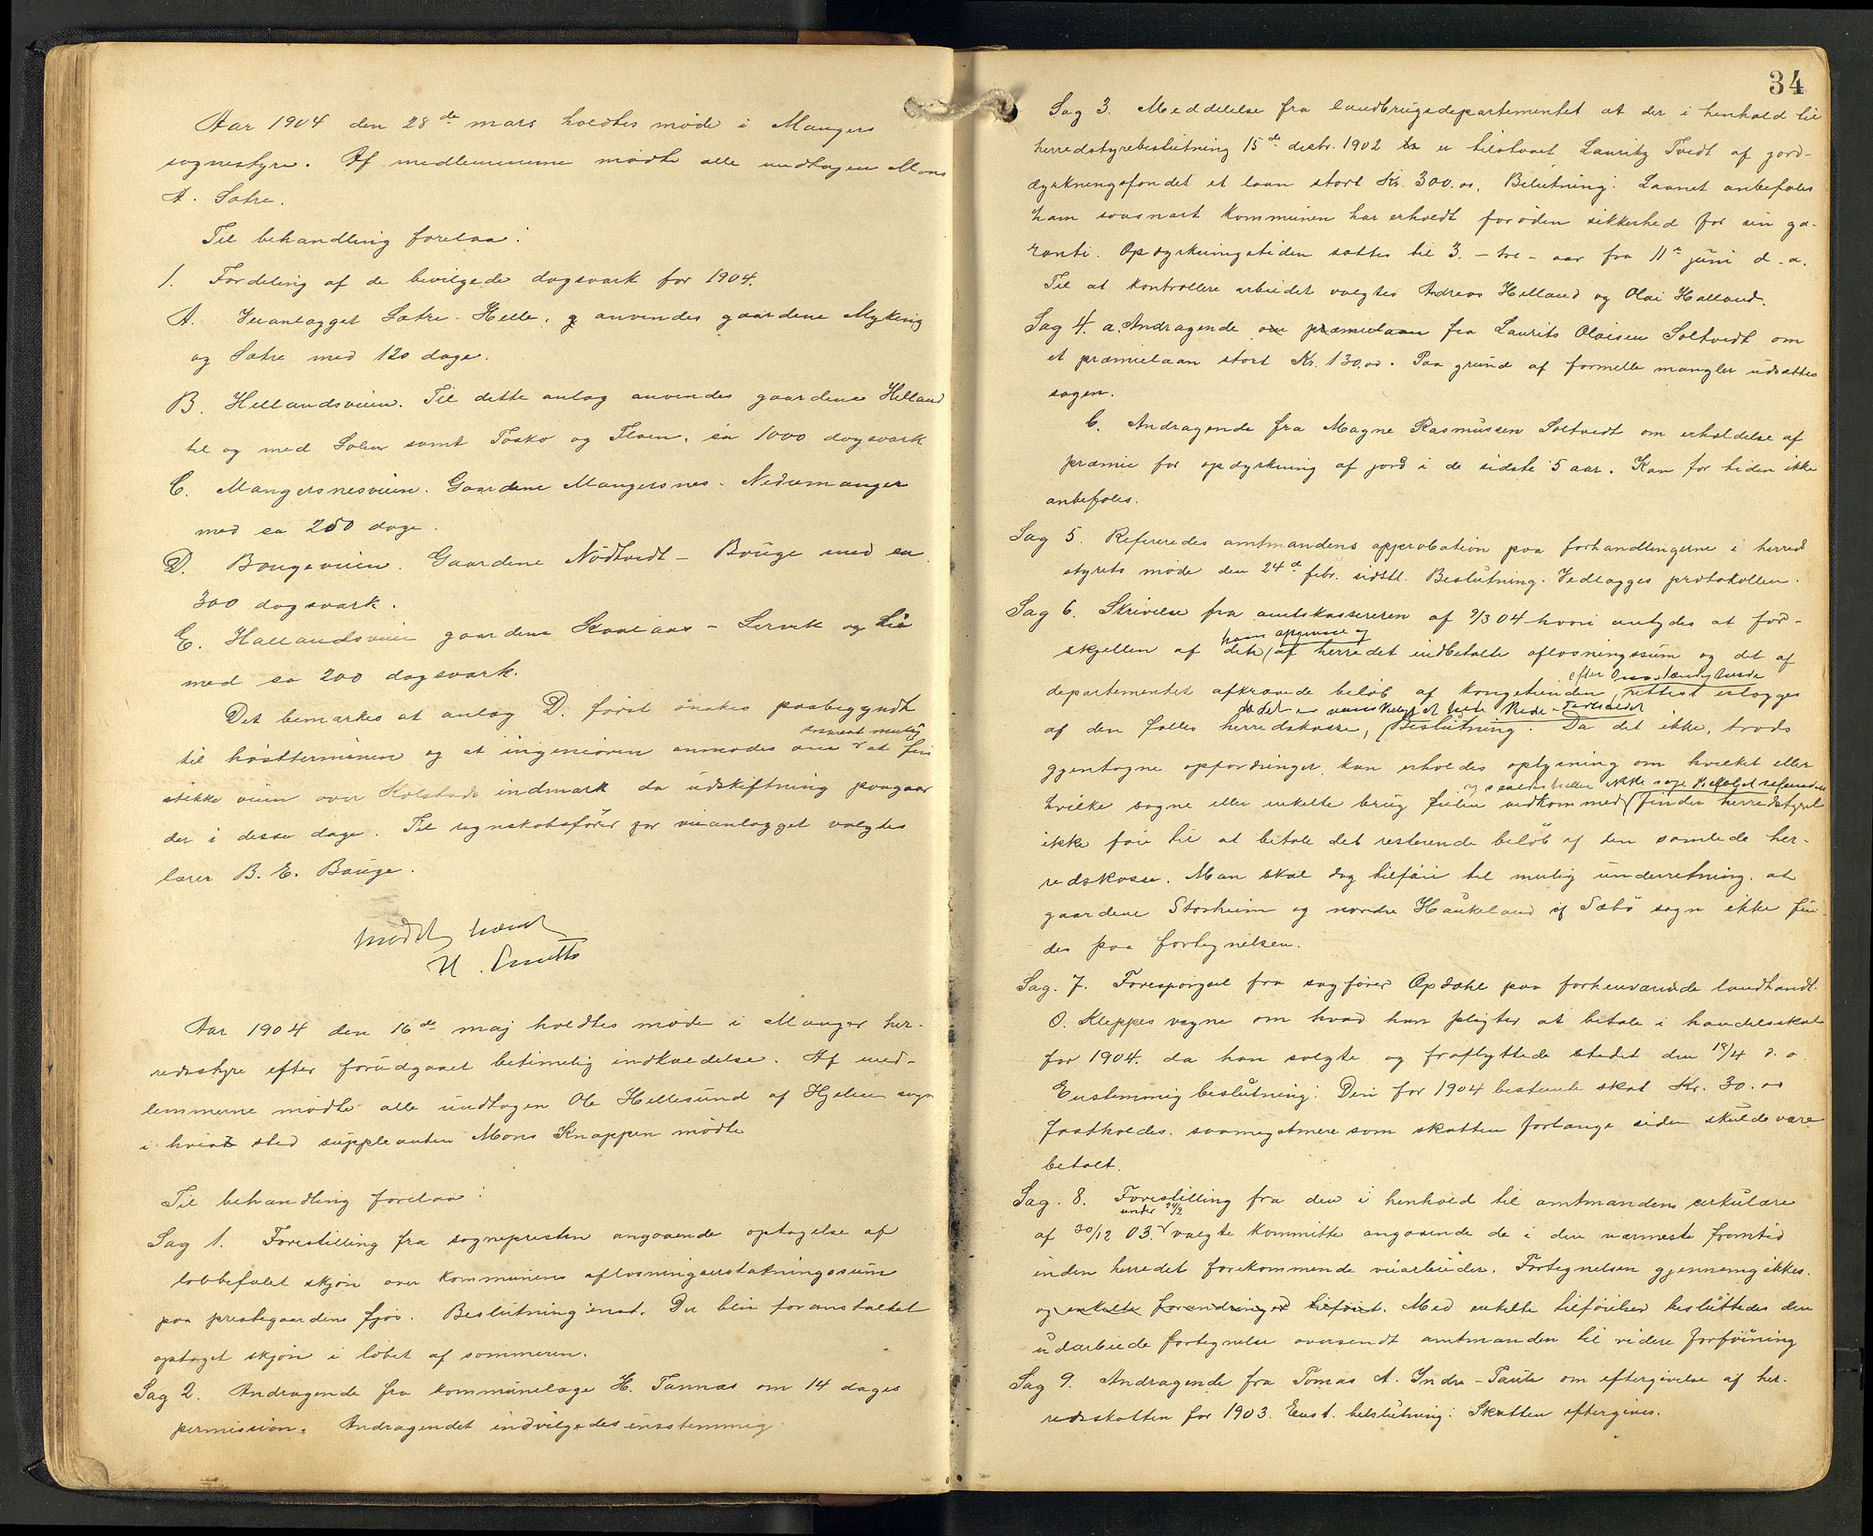 Aar 1904 den 28de mars holdtes møde i Mangers
sognestyre. Af medlemmerne mødte alle undtagen Mons
A. Sætre.
Til behandling forelaa:
1. Fordeling af de bevilgede dagsværk for 1904.
A. Veianlægget Sætre - Helle, anvendes gaardene Myking
og Sætre med 120 dage.
B. Hellandsveien. Til dette anlæg anvendes gaardene Helland
til og med Solem samt Toskø og Floen, ca 1000 dagsværk
C. Mangersnesveien. Gaardene Mangersnes - Nedremanger
med ca 250 dage.
D. Baugeveien. Gaardene Nødtvedt - Bauge med ca
300 dagsværk.
E. Hallandsveien gaardene Kvalaas - Lervik og Lie
med ca 200 dagsværk.
Det bemærkes at anlæg D. først ønskes paabegyndt
snarest mulig
til høstterminen og at ingeniøren anmodes om at
stikke veien over indmark da udskiftning paagaar
der i disse dage. Til regnskabsfører for veianlægget valgtes
lærer B. E. Bauge.
Mødet hævet
Aar 1904 den 16de maj holdtes møde i Manger her-
redsstyre efter forudgaaet betimelig indkaldelse. Af med-
lemmerne mødte alle undtagen Ole Hellesund af Hjelme sogn
i hvis sted suppleanten Mons Knappen mødte
Til behandling forelaa:
Sag 1. Forestilling fra sognepresten angaaende optagelse af
lovbefalet skjøn over kommunens afløsningserstatningssum
paa prestegaardens fjøs. Beslutning enst. Der blir foranstaltet
optaget skjøn i løbet af sommeren.
Sag 2. Andragende fra kommunelæge H. Tannæs om 14 dages
permission. Andragendet indvilgedes enstemmig
34
Sag 3. Meddelelse fra landbrugsdepartementet at der i henhold til
herredsstyrebeslutning 15de decbr. 1902 er tilstaaet Lauritz Tvedt af jord-
dyrkningsfondet et laan stort Kr. 300.00. Beslutning: Laanet anbefales
ham saasnart kommunen har erholdt forøden sikkerhed for sin ga-
ranti. Opdyrkningstiden sættes til 3. - tre - aar fra 11te juni d. a.
Til at kontrollere arbeidet valgtes Andreas Helland og Olai Halland.
Sag 4. a. Andragende om præmielaan fra Laurits Olaisen Soltvedt om
et præmielaan stort Kr. 130.00. Paa grund af formelle mangler udsættes
sagen.
C. Andragende fra Magne Rasmussen Soltvedt om erholdelse af
præmie for opdyrkning af jord i de sidste 5 aar. Kan for tiden ikke
anbefales.
Sag 5. Refereredes amtmandens approbation paa forhandlingerne i herred
styrets møde den 24de febr. sidstl. Beslutning. Vedlægges protokollen.
Sag 6. Skrivelse fra amtskassereren af 9/3 04 hvori antydes at for-
hans opgivne og
skjellen af det af herredet indbetalte afløsningssum og det af
departementet afkrævede beløb af kongetienden, rettest erlægges
af den fælles herredskasse, Beslutning: Da det ikke, trods
gjentagne opfordringer, kan erholdes oplysning om hvilket eller
hvilke sogne eller enkelte brug feilen vedkommer, finder herredstyret
ikke føie til at betale det resterende beløb af den samlede her-
redskasse. Man skal dog tilføie til mulig underretning, at
gaardene Storheim og nordre Haukeland i Sæbø sogn ikke fin-
des paa fortegnelsen.
Sag. 7. Forespørgsel fra sagfører Opdahl paa forhenværende landhandl.
O. Kleppes vegne om hvad han pligter at betale i handelsskat
for 1904. da han solgte og fraflyttede stedet den 18/4 d. a
Enstemmig beslutning: Den for 1904 bestemte skat Kr. 30.00
fastholdes, saameget mere som skatten forlænge siden skulde være
betalt.
Sag. 8. Forestilling fra den i henhold til amtmandens cirkulære
under 24/2
af 30/12 03. valgte kommitte angaaende de i den nærmeste fremtid
inden herredet forekommende veiarbeider. Fortegnelsen gjennemgikkes.
og enkelte forandringer tilføiet. Med enkelte tilføielser besluttedes den
udarbeide fortegnelse oversendt amtmanden til videre forføining
Sag 9. Andragende fra Tomas A. Indre-Taule om eftergivelse af her-
redsskatten for 1903. Enst. beslutning: Skatten eftergives.